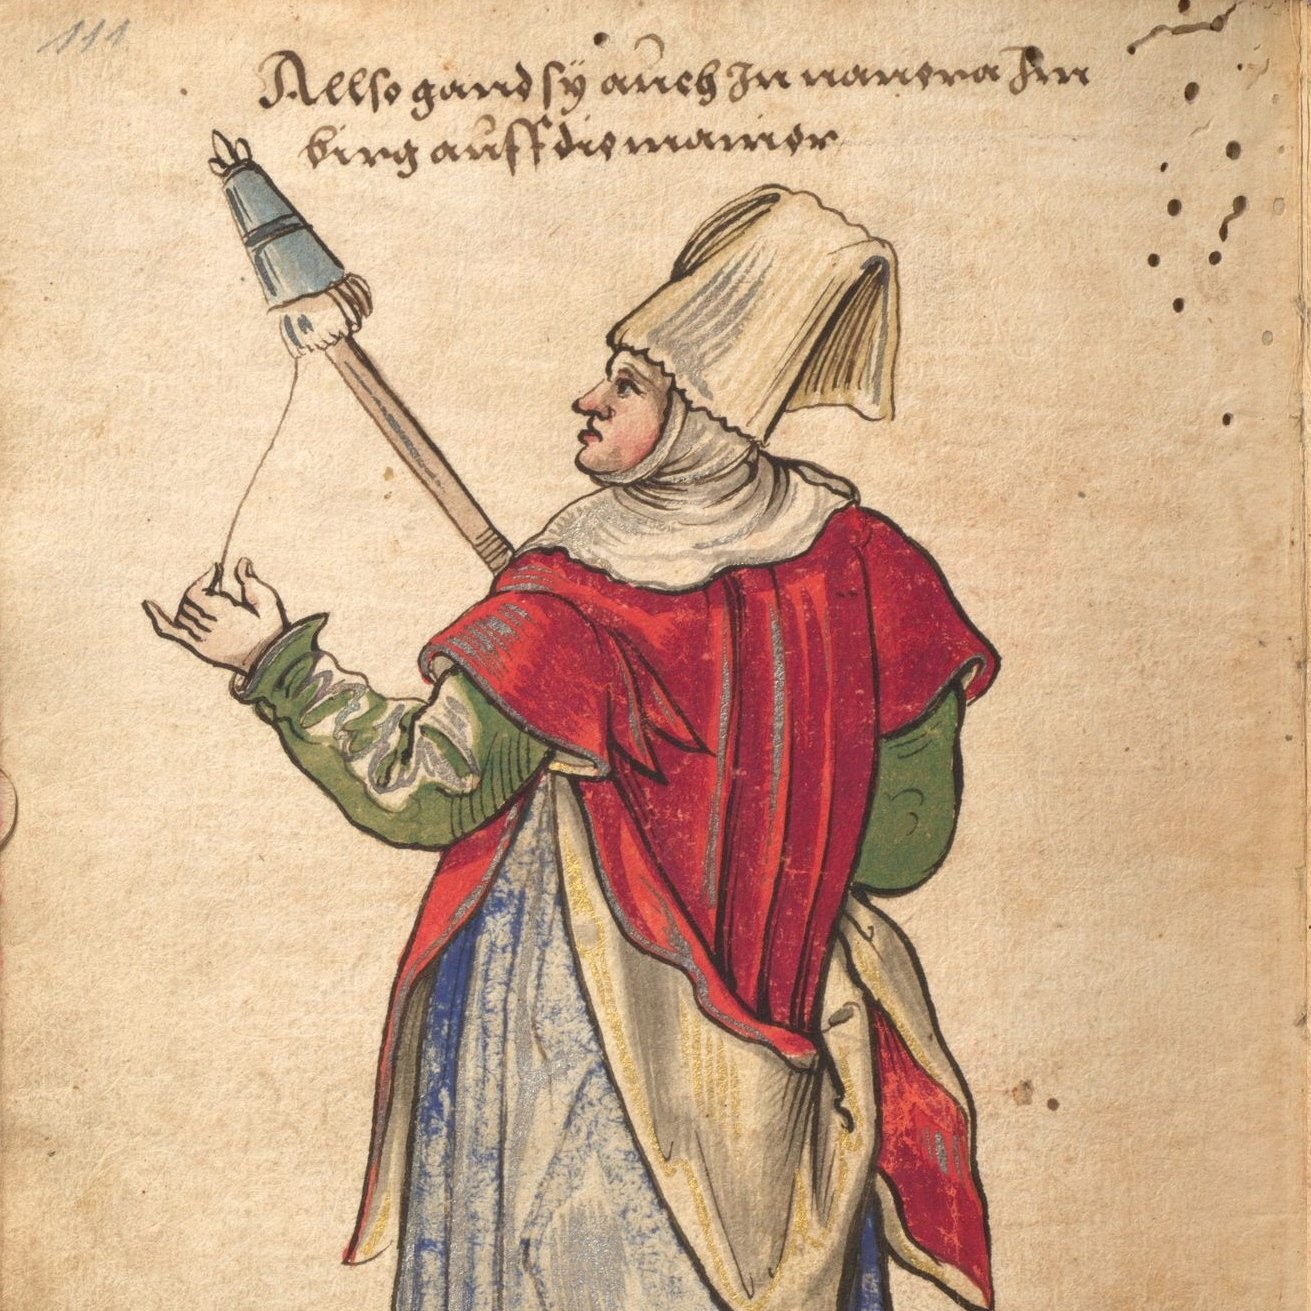 111
Allso gand sÿ auch In nauera Im
birg auff die manier